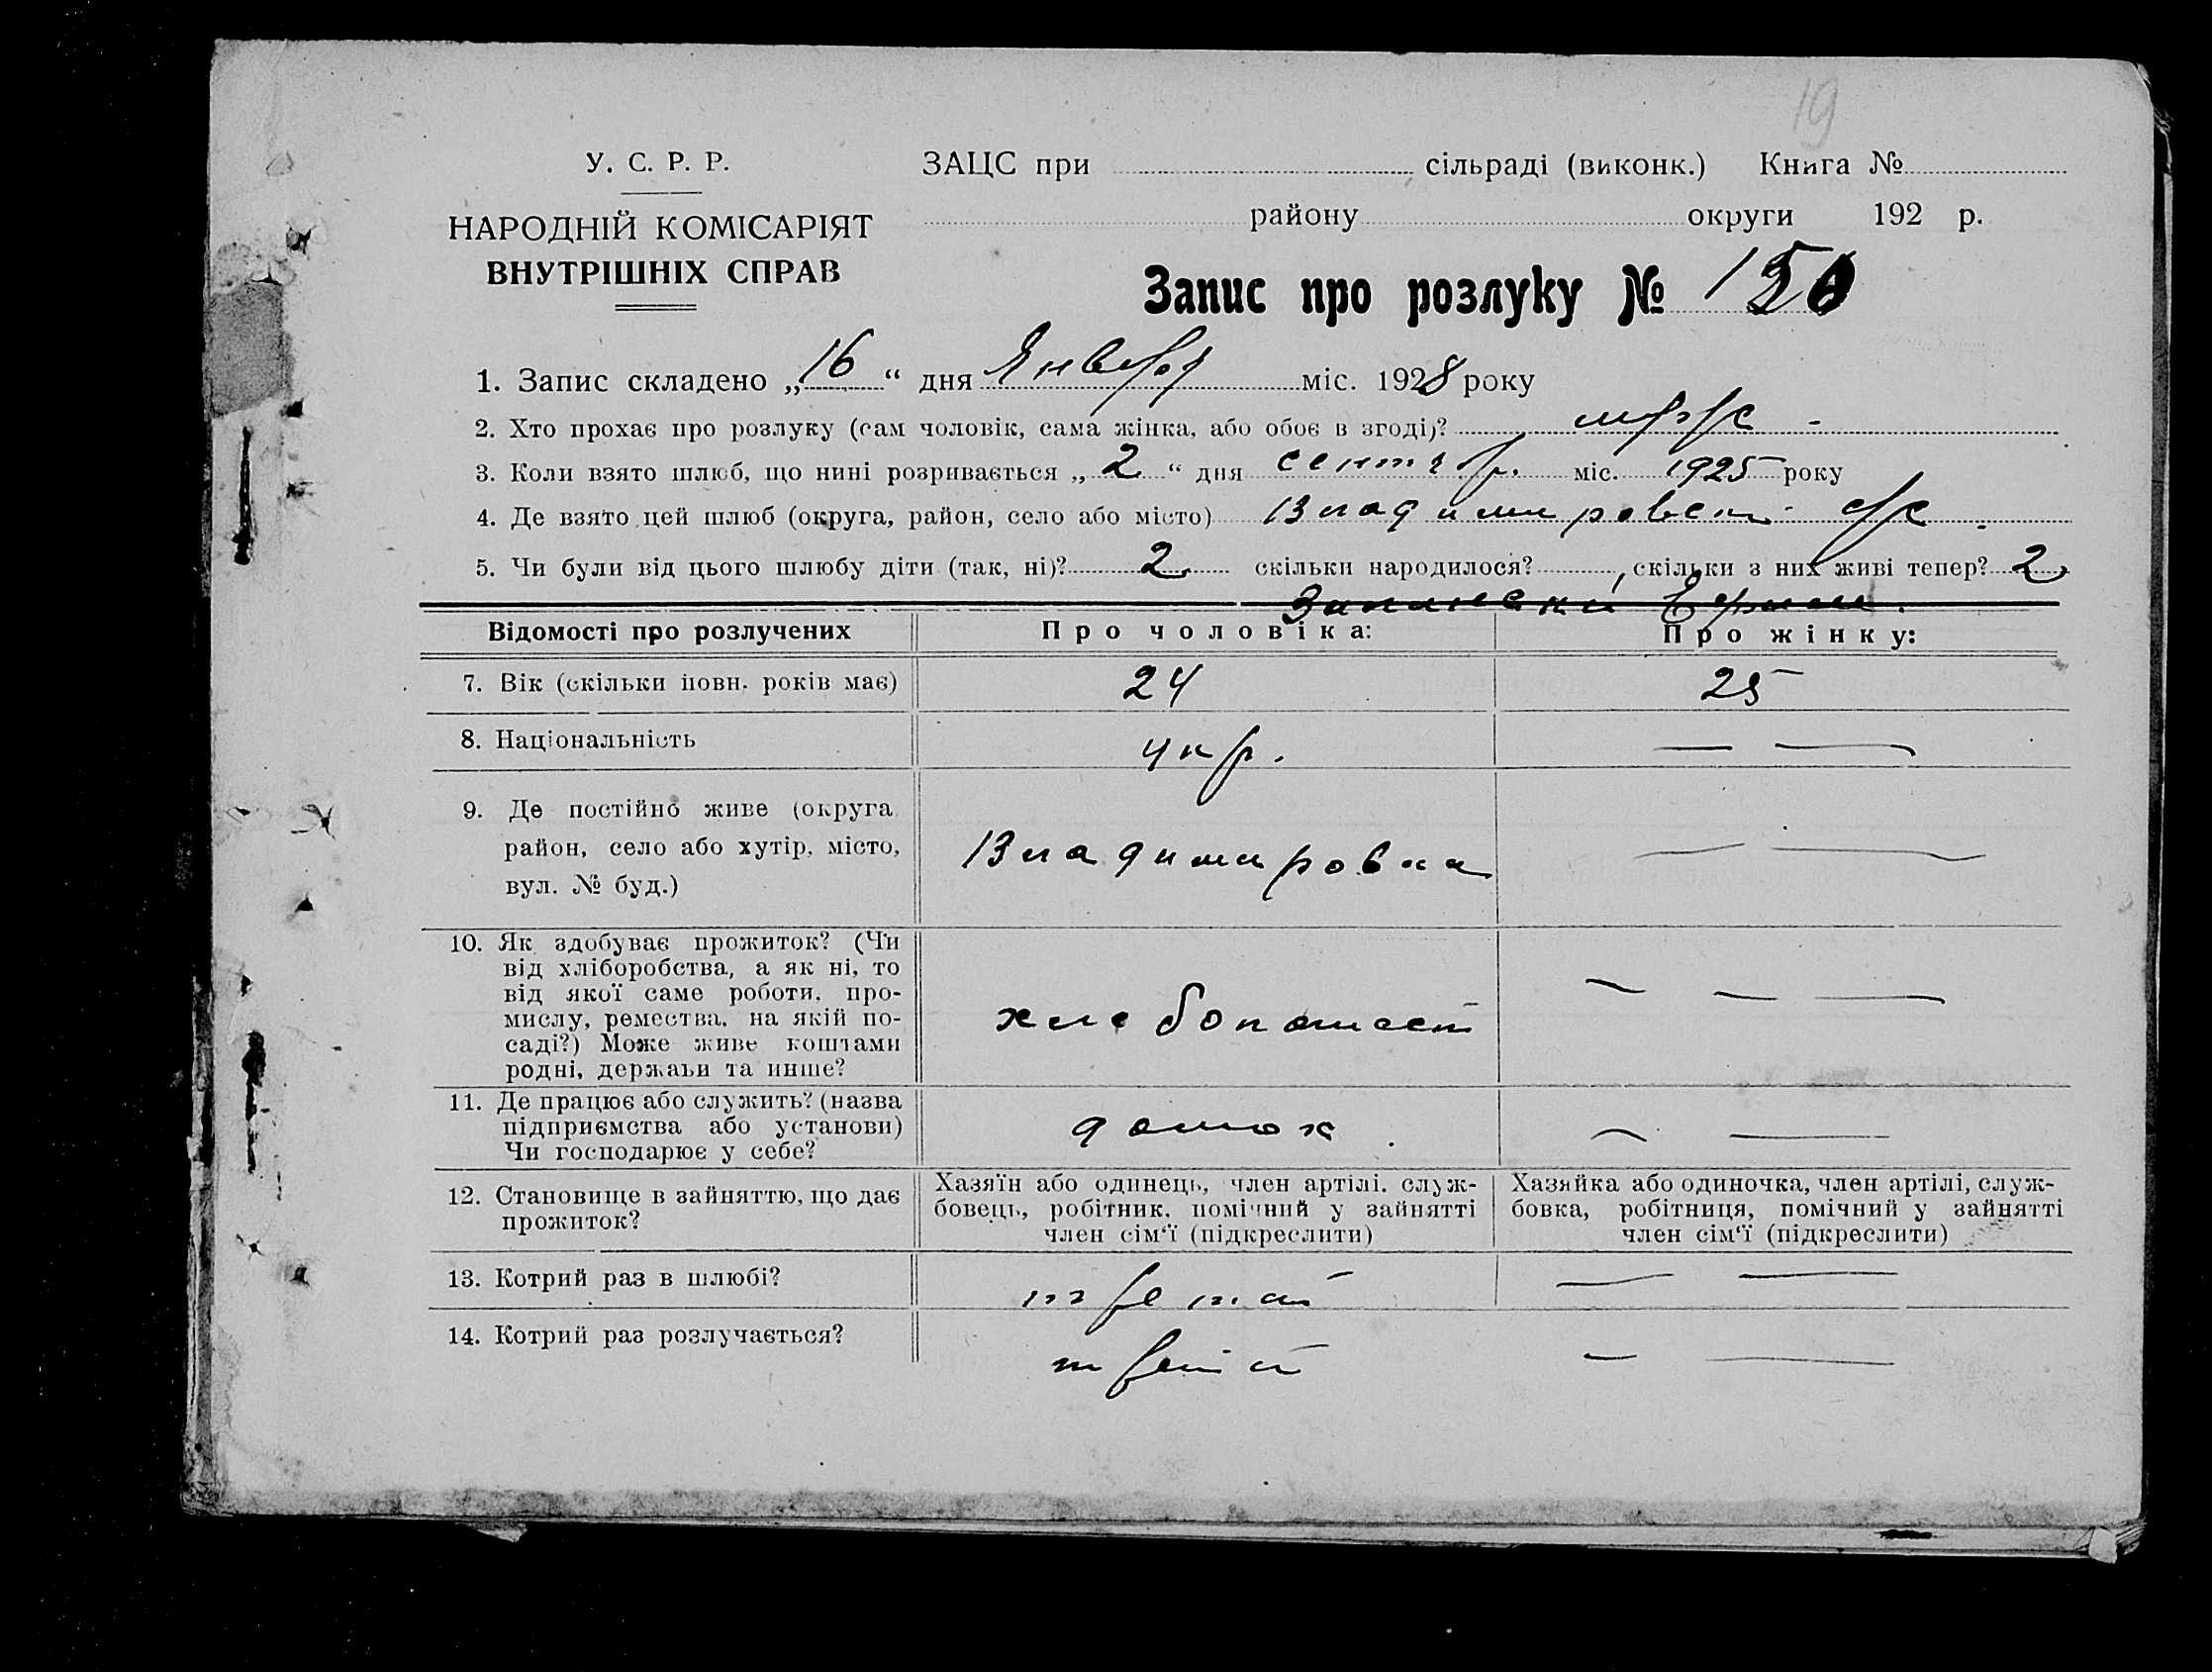 19
У. С. Р. Р.
НАРОДНІЙ КОМІСАРІЯТ
ВНУТРІШНІХ СПРАВ
ЗАЦС при сільраді (виконк.) Книга №
району округи 192 р.
Запис про розлуку № 150
1. Запис складено „16“ дня Января міс. 1928 року
2. Хто прохає про розлуку (сам чоловік, сама жінка, або обоє в згоді)?
3. Коли взято шлюб, що нині розривається „2“ дня сентяб. міс. 1925 року
4. Де взято цей шлюб (округа, район, село або місто) Владимировск. с/с.
5. Чи були від цього шлюбу діти (так, ні)? 2 скільки народилося? , скільки з них живі тепер? 2
Відомості про розлучених Про чоловіка: Про жінку:
7. Вік (скільки повн. років має) 24 25
8. Національність укр. — —
9. Де постійно живе (округа,
район, село або хутір, місто,
вул. № буд.)
Владимировка — —
10. Як здобуває прожиток? (Чи
від хліборобства, а як ні, то
від якої саме роботи, про-
мислу, ремества, на якій по-
саді?) Може живе коштами
родні, держави та инше?
хлебопашест — — —
11. Де працює або служить? (назва
підприємства або установи)
Чи господарює у себе?
— —
12. Становище в зайняттю, що дає
прожиток?
Хазяїн або одинець, член артілі, служ-
бовець, робітник, помічний у зайнятті
член сім‘ї (підкреслити)
Хазяйка або одиночка, член артілі, служ-
бовка, робітниця, помічний у зайнятті
член сім‘ї (підкреслити)
13. Котрий раз в шлюбі? третий — —
14. Котрий раз розлучається? третий — —